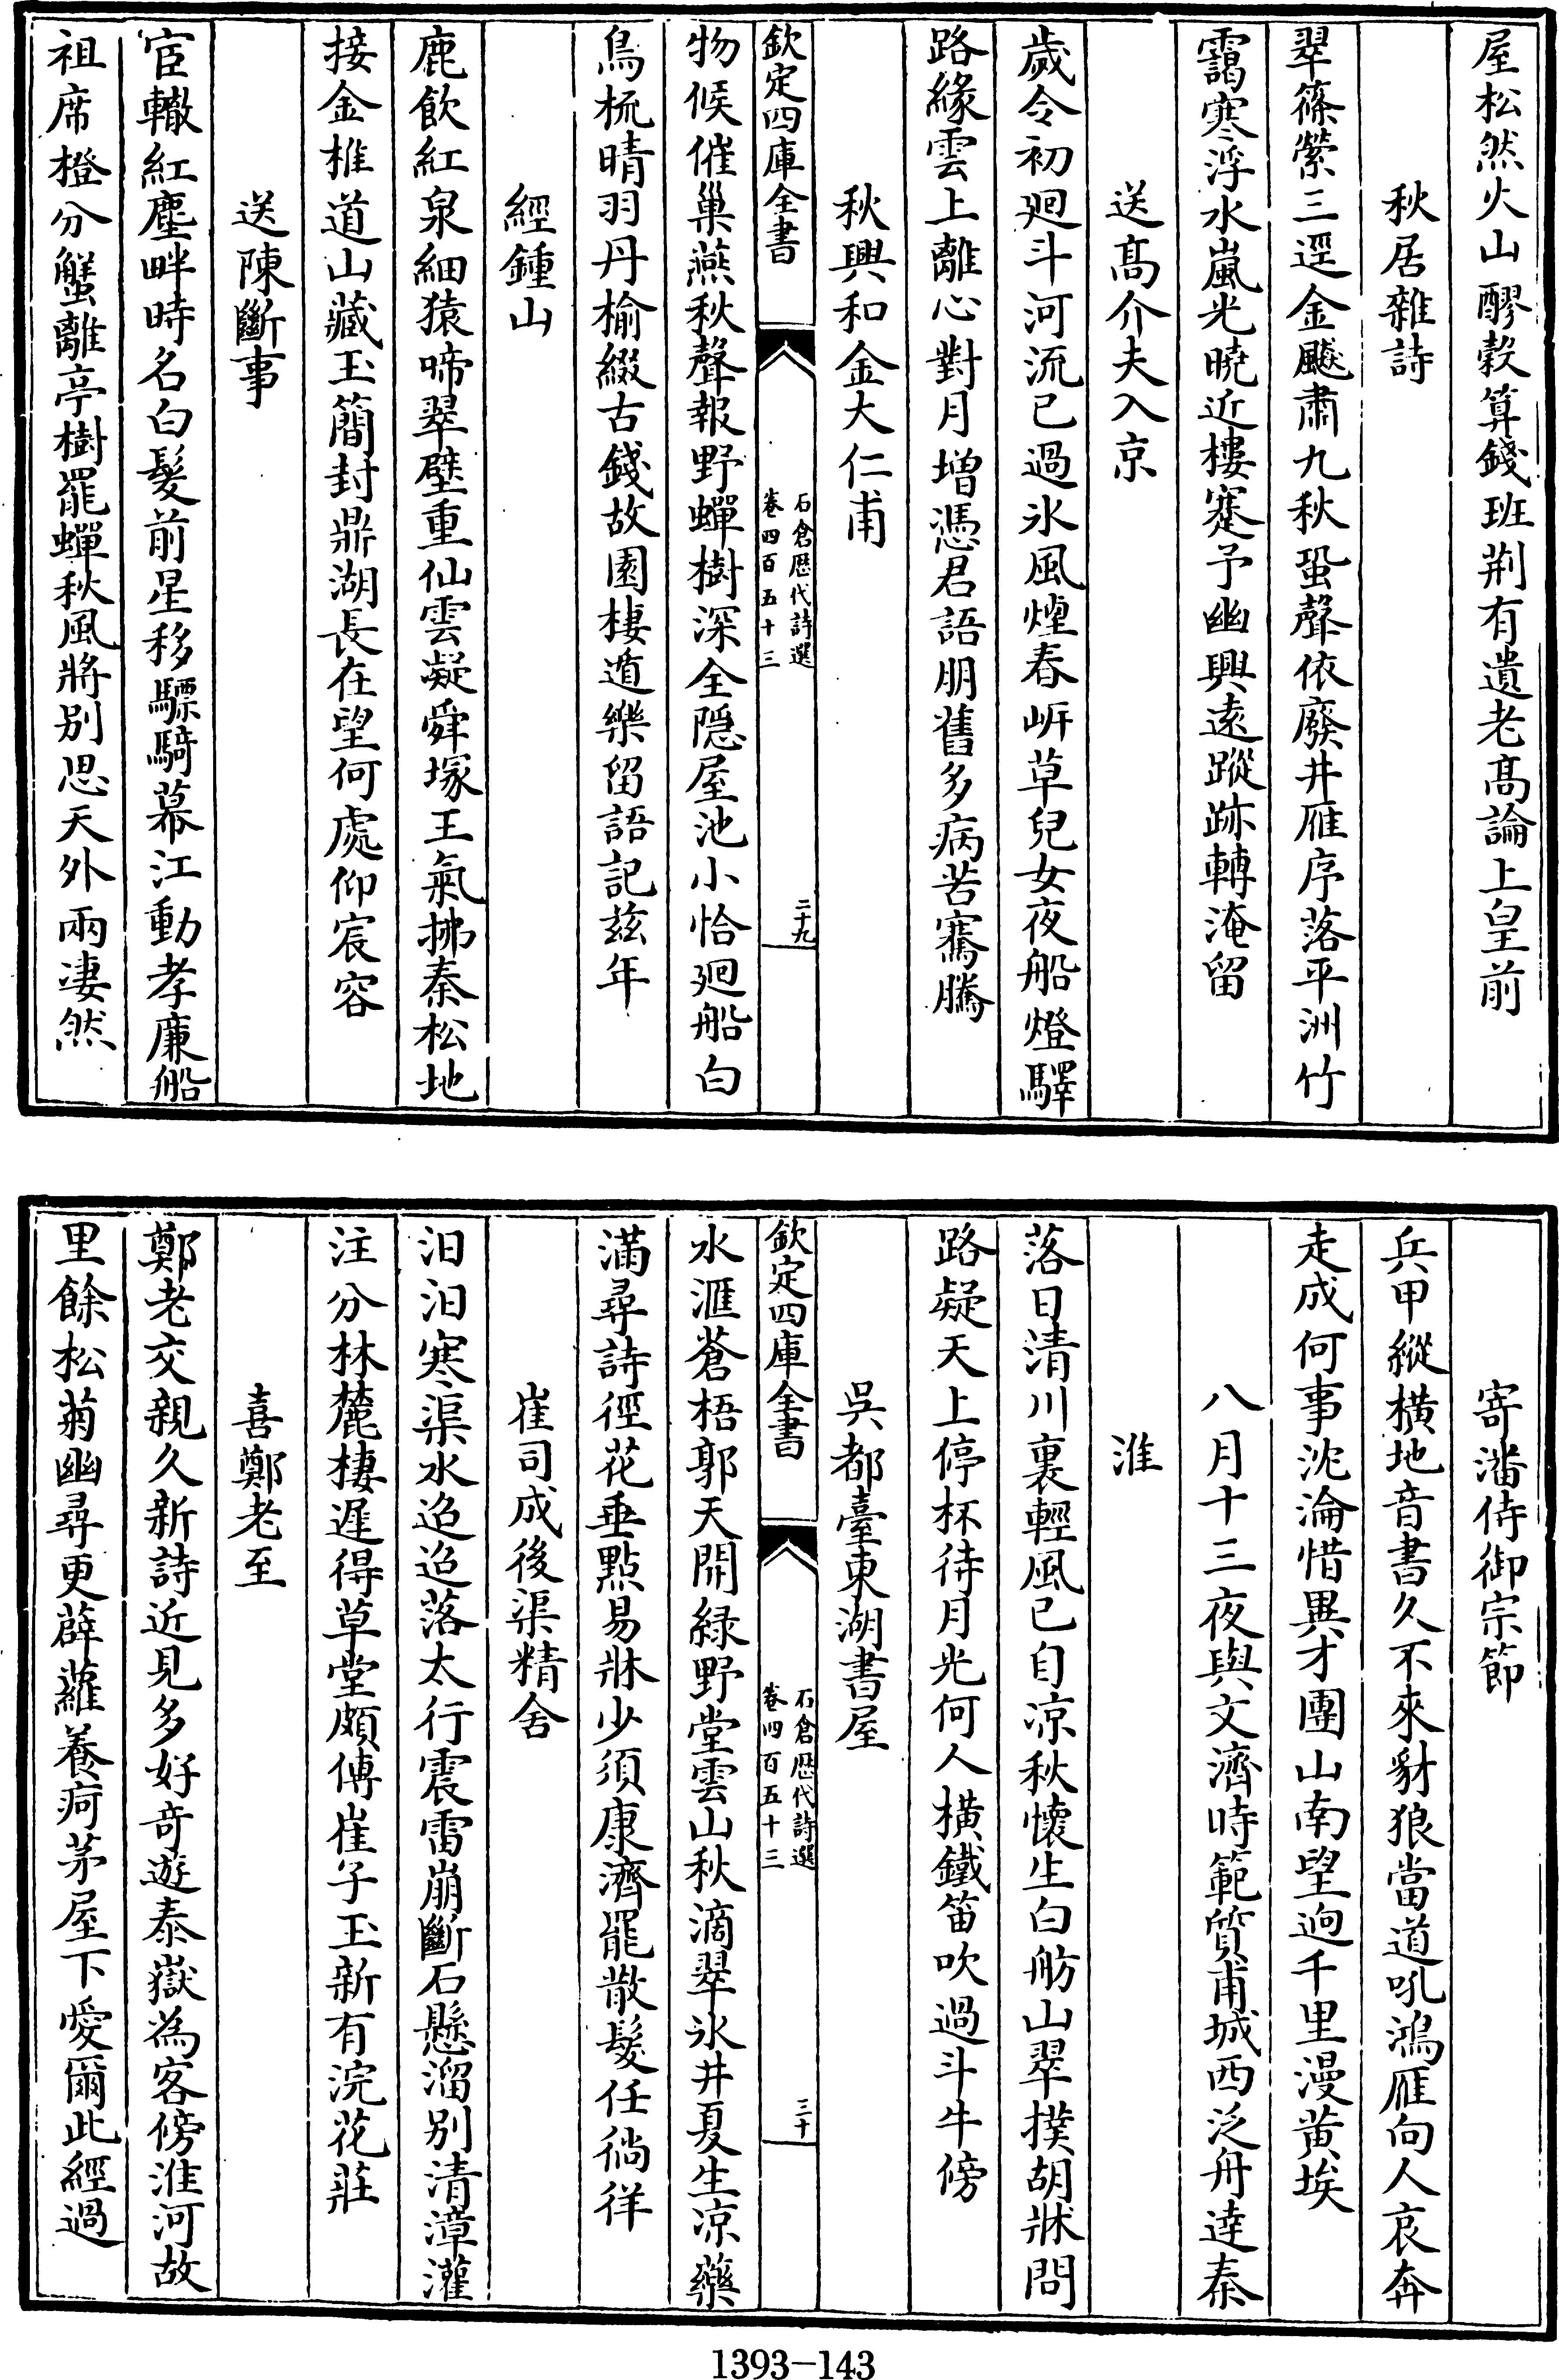 屋松然火山醪穀算錢班荆有遺老髙論上皇前
秋居雜詩
翠篠縈三逕金飈肅九秋蛩聲依廢井雁序落平洲竹
靄寒浮水嵐光曉近樓蹇予幽興遠蹤跡轉淹留
送髙介夫入京
歲令初廻斗河流已過氷風煙春岍草兒女夜船燈驛
路緣雲上離心對月增憑君語朋舊多病苦騫騰
秋興和金大仁甫
欽定四庫全書
石倉歴代詩選
卷四百五十三
二十九
物候催巢燕秋聲報野蟬樹深全隠屋池小恰廻船白
鳥梳晴羽丹榆綴古錢故園棲遁樂留語記兹年
經鍾山
鹿飲紅泉細猿啼翠壁重仙雲凝舜塚王氣拂秦松地
接金椎道山藏玉簡封鼎湖長在望何處仰宸容
送陳斷事
宦轍紅塵畔時名白髮前星移驃騎幕江動孝廉船
祖席橙分蟹離亭樹罷蟬秋風將别思天外兩凄然
寄潘侍御宗節
兵甲縱横地音書久不來豺狼當道吼鴻雁向人哀奔
走成何事沈淪惜異才團山南望逈千里漫黄埃
八月十三夜與文濟時範質甫城西泛舟逹秦
淮
落日清川裏輕風已自凉秋懷生白舫山翠撲胡牀問
路疑天上停杯待月光何人横鐵笛吹過斗牛傍
吳都臺東湖書屋
欽定四庫全書
石倉歴代詩選
卷四百五十三
三十
水滙蒼梧郭天開緑野堂雲山秋滴翠氷井夏生凉藥
滿尋詩徑花垂點易牀少須康濟罷散髮任徜徉
崔司成後渠精舍
汩汩寒渠水迢迢落太行震雷崩斷石懸溜别清漳灌
注分林麓棲遲得草堂頗傳崔子玉新有浣花莊
喜鄭老至
鄭老交親久新詩近見多好奇遊泰嶽為客傍淮河故
里餘松菊幽尋更薜蘿養疴茅屋下愛爾此經過
1393-143